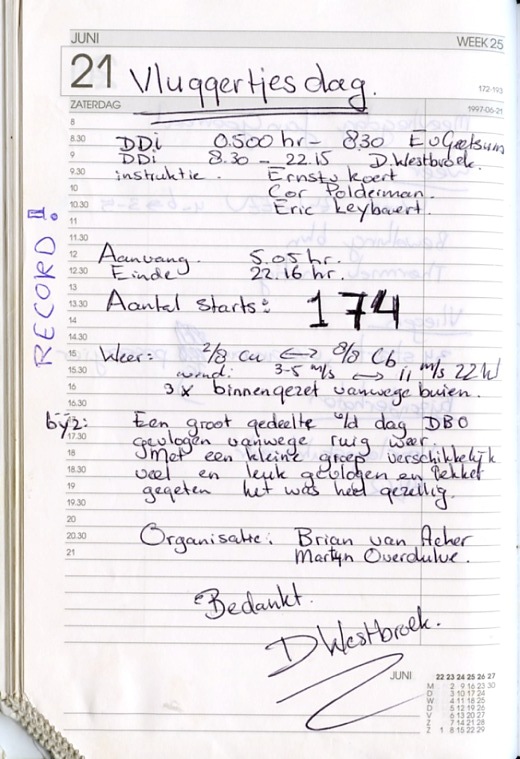 JUNI WEEK 25
21 Vluggertjesdag.
172-193
ZATERDAG 1997-06-21
8
8.30 DDi 0.500 hr - 8.30 E v Geetsum
9 DDi 8.30 - 22.15 D. Westbroek.
9.30 instruktie. Ernst v Koert
10 Cor Polderman.
10.30 Eric Keybaert.
11
RECORD!
11.30
12 Aanvang. 5.05 hr.
12.30 Einde 22.16 hr.
13
13.30 Aantal starts: 174
14
14.30
15 Weer: 2/8 Cu <-> 8/8 Cb
15.30 wind: 3-5 m/s <-> 11 m/s ZZW
16 3 x binnengezet vanwege buien.
16.30
byz: Een groot gedeelte v/d dag DBO
17.30 gevlogen vanwege ruig weer.
18 Met een kleine groep verschikkelijk
18.30 veel en leuk gevlogen en lekker
19 gegeten het was heel gezellig.
19.30
20
20.30 Organisatie: Brian van Acher
21 Martyn Overdulve.
Bedankt.
D Westbroek.
JUNI 22 23 24 25 26 27
M 2 9 16 23 30
D 3 10 17 24
W 4 11 18 25
D 5 12 19 26
V 6 13 20 27
Z 7 14 21 28
Z 1 8 15 22 29